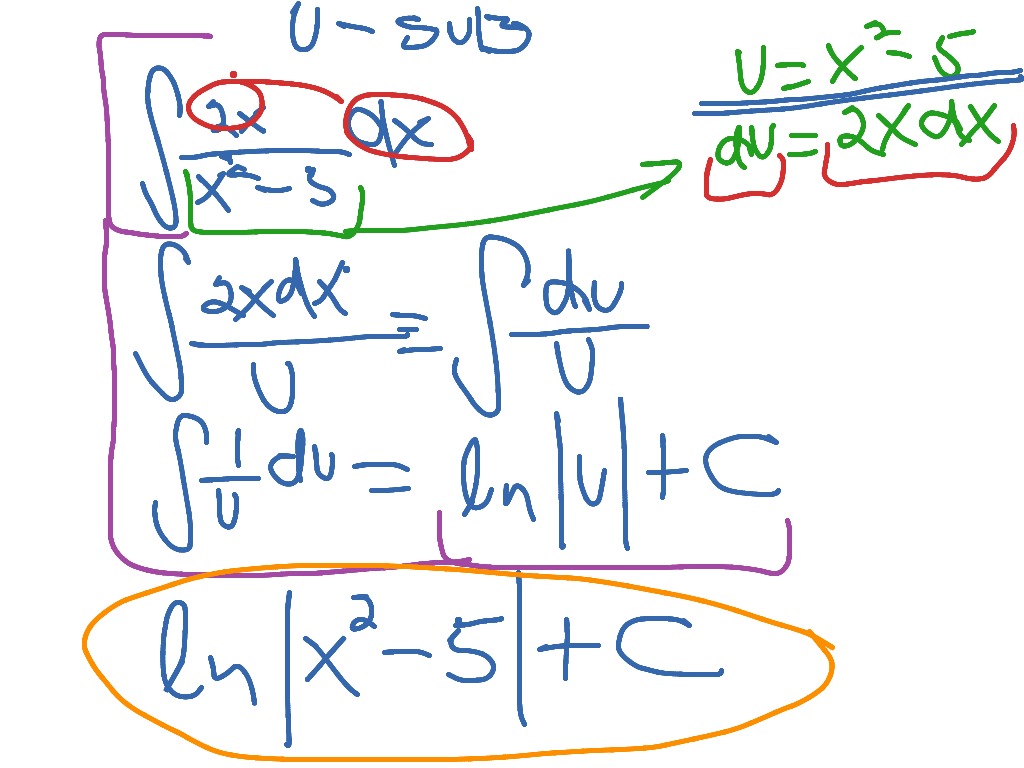 U - SUB
∫ 2x dx / x² - 5
U = x² - 5
du = 2x dx
∫ 2x dx / U = ∫ du / U
∫ 1/U du = ln |u| + C
ln |x² - 5| + C